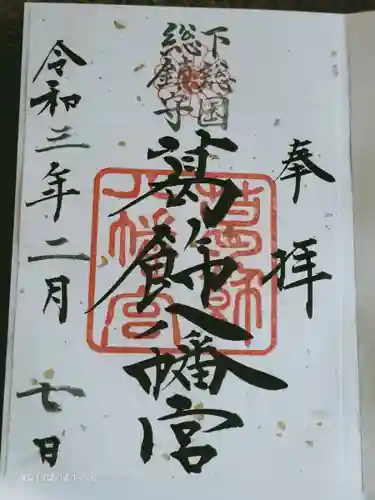 奉拝
下総国
総鎮守
葛飾八幡宮
葛飾
八幡宮
令和三年二月七日